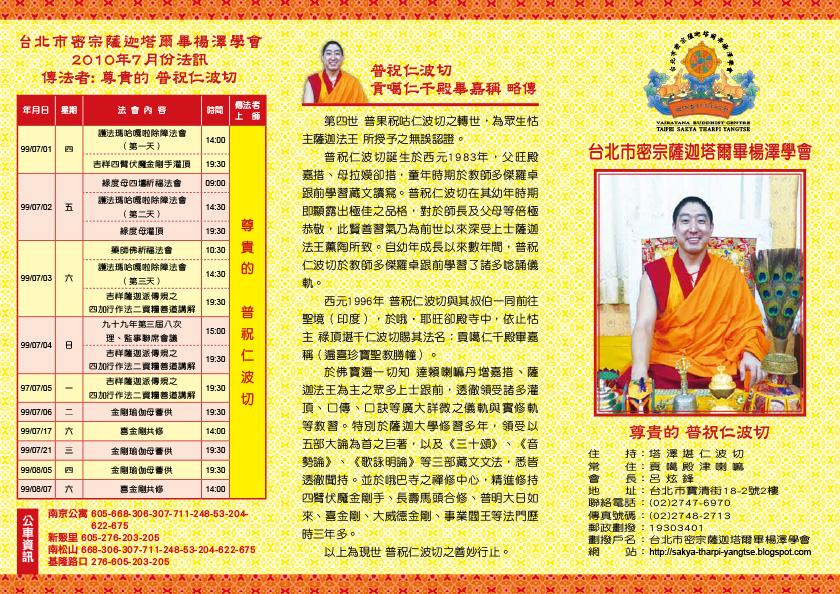 台北市密宗薩迦塔爾畢楊澤學會
2010年7月份法訊
傳法者: 尊貴的 普祝仁波切
年月日 星期 法會內容 時間 傳法者上師
99/07/01 四 護法瑪哈嘎啦除障法會（第一天） 14:00
吉祥四臂伏魔金剛手灌頂 19:30
99/07/02 五 綠度母四壇祈福法會 09:00
護法瑪哈嘎啦除障法會（第二天） 14:30
綠度母灌頂 19:30
99/07/03 六 藥師佛祈福法會 10:30
護法瑪哈嘎啦除障法會（第三天） 14:30
吉祥薩迦派傳規之四加行作法二資糧善道講解 19:30
99/07/04 日 九十九年第三屆八次理、監事聯席會議 15:00
吉祥薩迦派傳規之四加行作法二資糧善道講解 19:30
97/07/05 一 吉祥薩迦派傳規之四加行作法二資糧善道講解 19:30
99/07/06 二 金剛瑜伽母薈供 19:30
99/07/17 六 喜金剛共修 14:00
99/07/21 三 金剛瑜伽母薈供 19:30
99/08/05 四 金剛瑜伽母薈供 19:30
99/08/07 六 喜金剛共修 14:00
尊貴的 普祝仁波切
公車資訊
南京公寓 605-668-306-307-711-248-53-204-
622-675
新聚里 605-276-203-205
南松山 668-306-307-711-248-53-204-622-675
基隆路口 276-605-203-205
普祝仁波切
貢噶仁千殿畢嘉稱 略傳
第四世 普果祝咕仁波切之轉世，為眾生怙
主薩迦法王 所授予之無誤認證。
普祝仁波切誕生於西元1983年，父旺殿
嘉措、母拉嫫卻措，童年時期於教師多傑羅卓
跟前學習藏文讀寫。普祝仁波切在其幼年時期
即顯露出極佳之品格，對於師長及父母等倍極
恭敬，此賢善習氣乃為前世以來深受上士薩迦
法王薰陶所致。自幼年成長以來數年間，普祝
仁波切於教師多傑羅卓跟前學習了諸多唸誦儀
軌。
西元1996年 普祝仁波切與其叔伯一同前往
聖境（印度），於哦．耶旺卻殿寺中，依止怙
主 祿頂堪千仁波切賜其法名：貢噶仁千殿畢嘉
稱（遍喜珍寶聖教勝幢）。
於佛寶遍一切知 達賴喇嘛丹增嘉措、薩
迦法王為主之眾多上士跟前，透徹領受諸多灌
頂、口傳、口訣等廣大詳微之儀軌與實修軌
等教習。特別於薩迦大學修習多年，領受以
五部大論為首之巨著，以及《三十頌》、《音
勢論》、《歌詠明論》等三部藏文文法，悉皆
透徹聞持。並於峨巴寺之禪修中心，精進修持
四臂伏魔金剛手、長壽馬頭合修、普明大日如
來、喜金剛、大威德金剛、事業閻王等法門歷
時三年多。
以上為現世 普祝仁波切之善妙行止。
台北市密宗薩迦塔爾畢楊澤學會
VAJRAYANA BUDDHIST CENTRE
TAIPEI SAKYA THARPI YANGTSE
台北市密宗薩迦塔爾畢楊澤學會
尊貴的 普祝仁波切
住持：塔澤堪仁波切
常住：貢噶殿津喇嘛
會長：呂炫鋒
地址：台北市寶清街18-2號2樓
聯絡電話：(02)2747-6970
傳真號碼：(02)2748-2713
郵政劃撥：19303401
劃撥戶名：台北市密宗薩迦塔爾畢楊澤學會
網站：http://sakya-tharpi-yangtse.blogspot.com